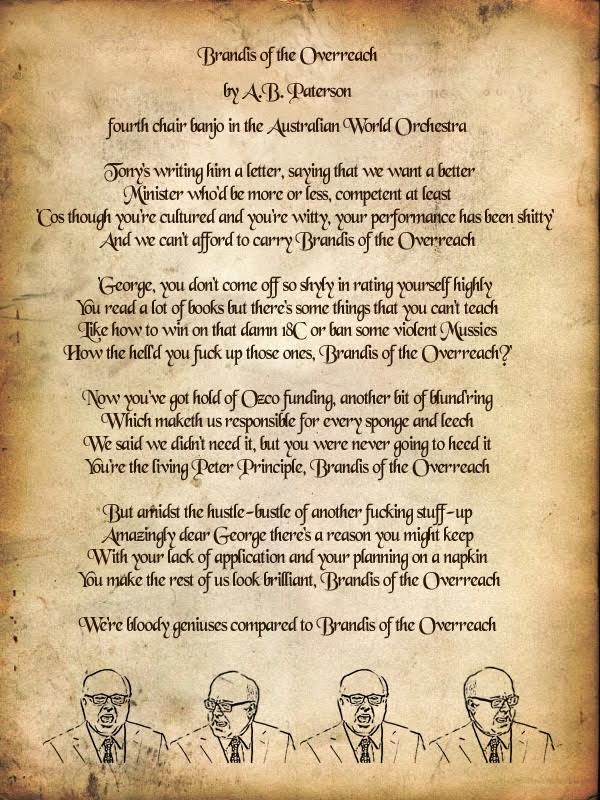 Brandis of the Overreach
by A.B. Paterson
fourth chair banjo in the Australian World Orchestra
Tony's writing him a letter, saying that we want a better
Minister who'd be more or less, competent at least
'Cos though you're cultured and you're witty, your performance has been shitty'
And we can't afford to carry Brandis of the Overreach
'George, you don't come off so shyly in rating yourself highly
You read a lot of books but there's some things that you can't teach
Like how to win on that damn 18C or ban some violent Mussies
How the hell'd you fuck up those ones, Brandis of the Overreach?'
Now you've got hold of Ozco funding, another bit of blund'ring
Which maketh us responsible for every sponge and leech
We said we didn't need it, but you were never going to heed it
You're the living Peter Principle, Brandis of the Overreach
But amidst the hustle-bustle of another fucking stuff-up
Amazingly dear George there's a reason you might keep
With your lack of application and your planning on a napkin
You make the rest of us look brilliant, Brandis of the Overreach
We're bloody geniuses compared to Brandis of the Overreach